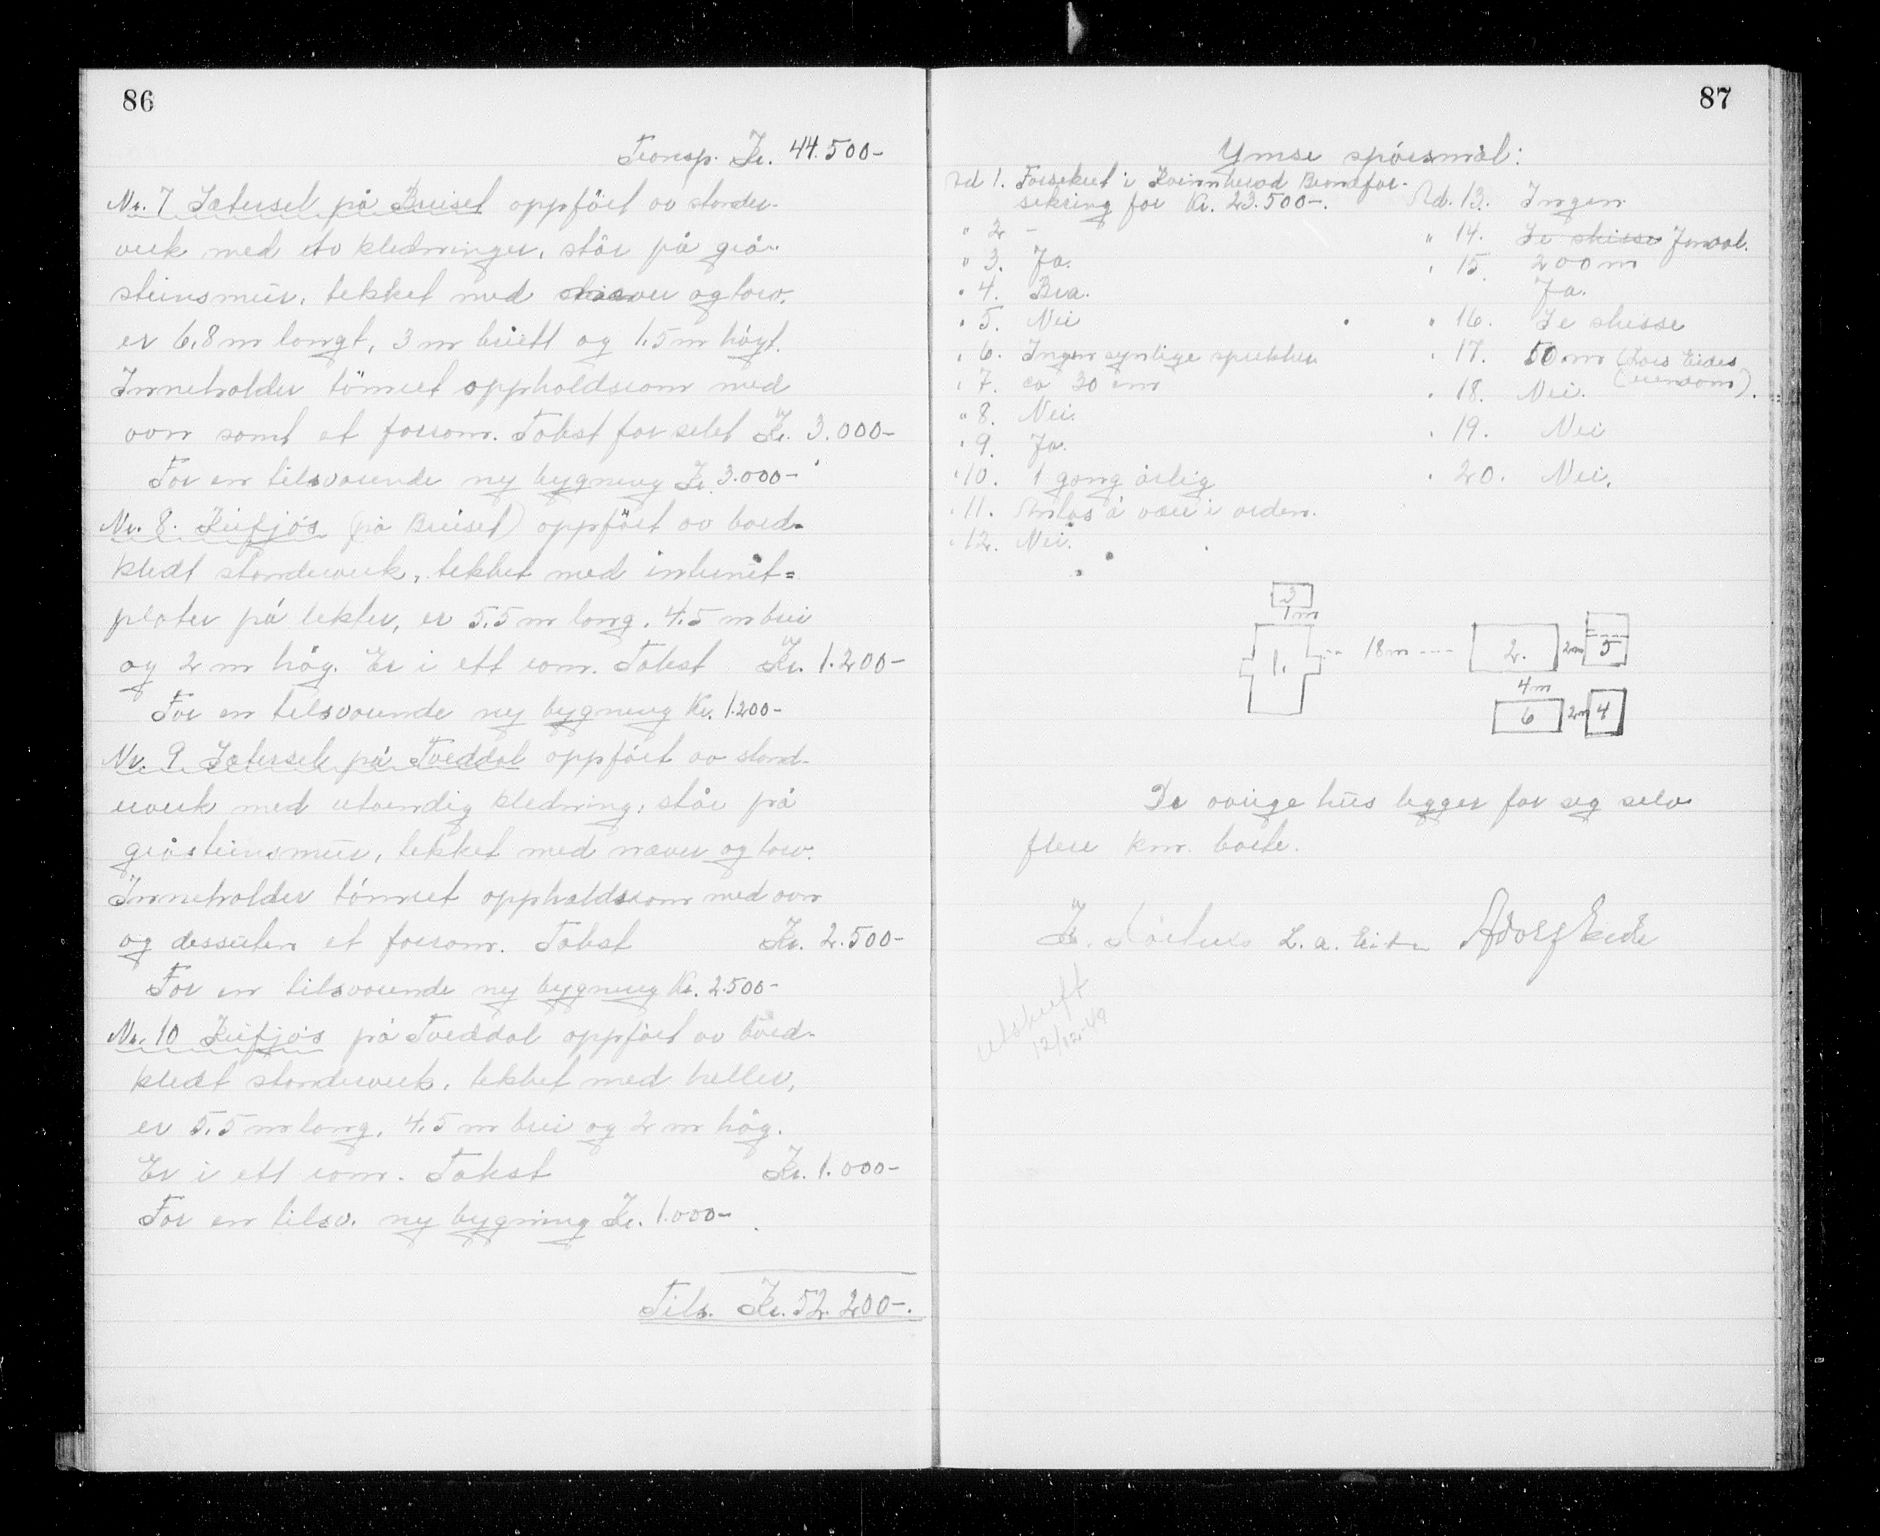 86
Transp. Kr. 44.500-
Nr. 7 Sætersel på Breiset oppført av stender-
verk med to kledninger, står på grå-
steinsmur, tekket med næver og torv,
er 6,8 m langt, 3 m breitt og 1,5 m høgt.
Inneholder tømret oppholdsrom med
ovn samt et forrom. Takst for selet Kr. 3.000-
For en tilsvarende ny bygning Kr. 3.000-
Nr. 8. Kufjøs (på Breiset) oppført av bord-
kledt stenderverk, tekket med internit=
plater på lekter, er 5,5 m lang, 4,5 m brei
og 2 m høg. Er i ett rom. Takst Kr. 1.200-
For en tilsvarende ny bygning Kr. 1.200-
Nr. 9 Sætersel på Tveddal oppført av stend-
erverk med utvendig kledning, står på
gråsteinsmur, tekket med næver og torv.
Inneholder tømret oppholdsrom med ovn
og dessuten et forrom. Takst Kr. 2.500-
For en tilsvarende ny bygning Kr. 2.500-
Nr. 10 Kufjøs på Tveddal oppført av bord-
kledt stenderverk, tekket med heller,
er 5,5 m lang, 4,5 m brei og 2 m høg.
Er i ett rom. Takst Kr. 1.000-
For en tilsv. ny bygning Kr. 1.000-
Tils. Kr. 52.200-.
87
Ymse spørsmål:
Ad 1. Forsikret i Kvinnherad Brandfor-
sikring for Kr. 23.500-.
" 2 -
" 3. Ja.
" 4. Bra.
" 5. Nei
" 6. Ingen synlige sprekker
" 7. ca 30 cm
" 8. Nei.
" 9. Ja.
" 10. 1 gang årlig
" 11. Antas å være i orden.
" 12. Nei.
Ad. 13. Ingen
" 14. Se skisse
" 15. 200 m
Ja.
" 16. Se skisse
" 17. 50 m (Lars Eides
eiendom).
" 18. Nei.
" 19. Nei
" 20. Nei.
3
1 m
1.
18 m
2.
2 m
5
4 m
6
2 m
4
De øvrige hus ligger for seg selv
flere km. borte.
L. A. Eide Adolf Eide
utskrift
12/12-49